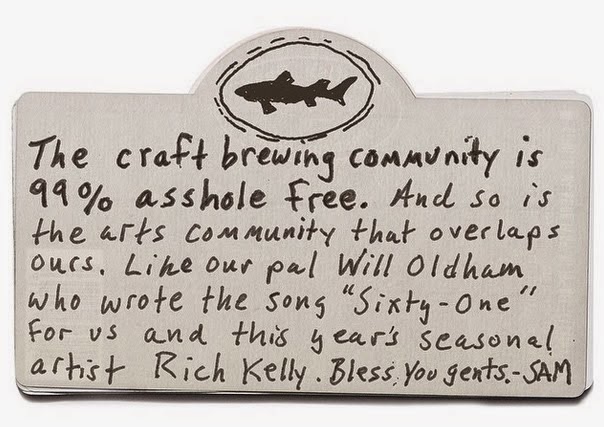 The craft brewing community is
99% asshole free. And so is
the arts community that overlaps
ours. Like our pal Will Oldham
who wrote the song "Sixty-One"
for us and this year's seasonal
artist Rich Kelly. Bless, You gents.-SAM